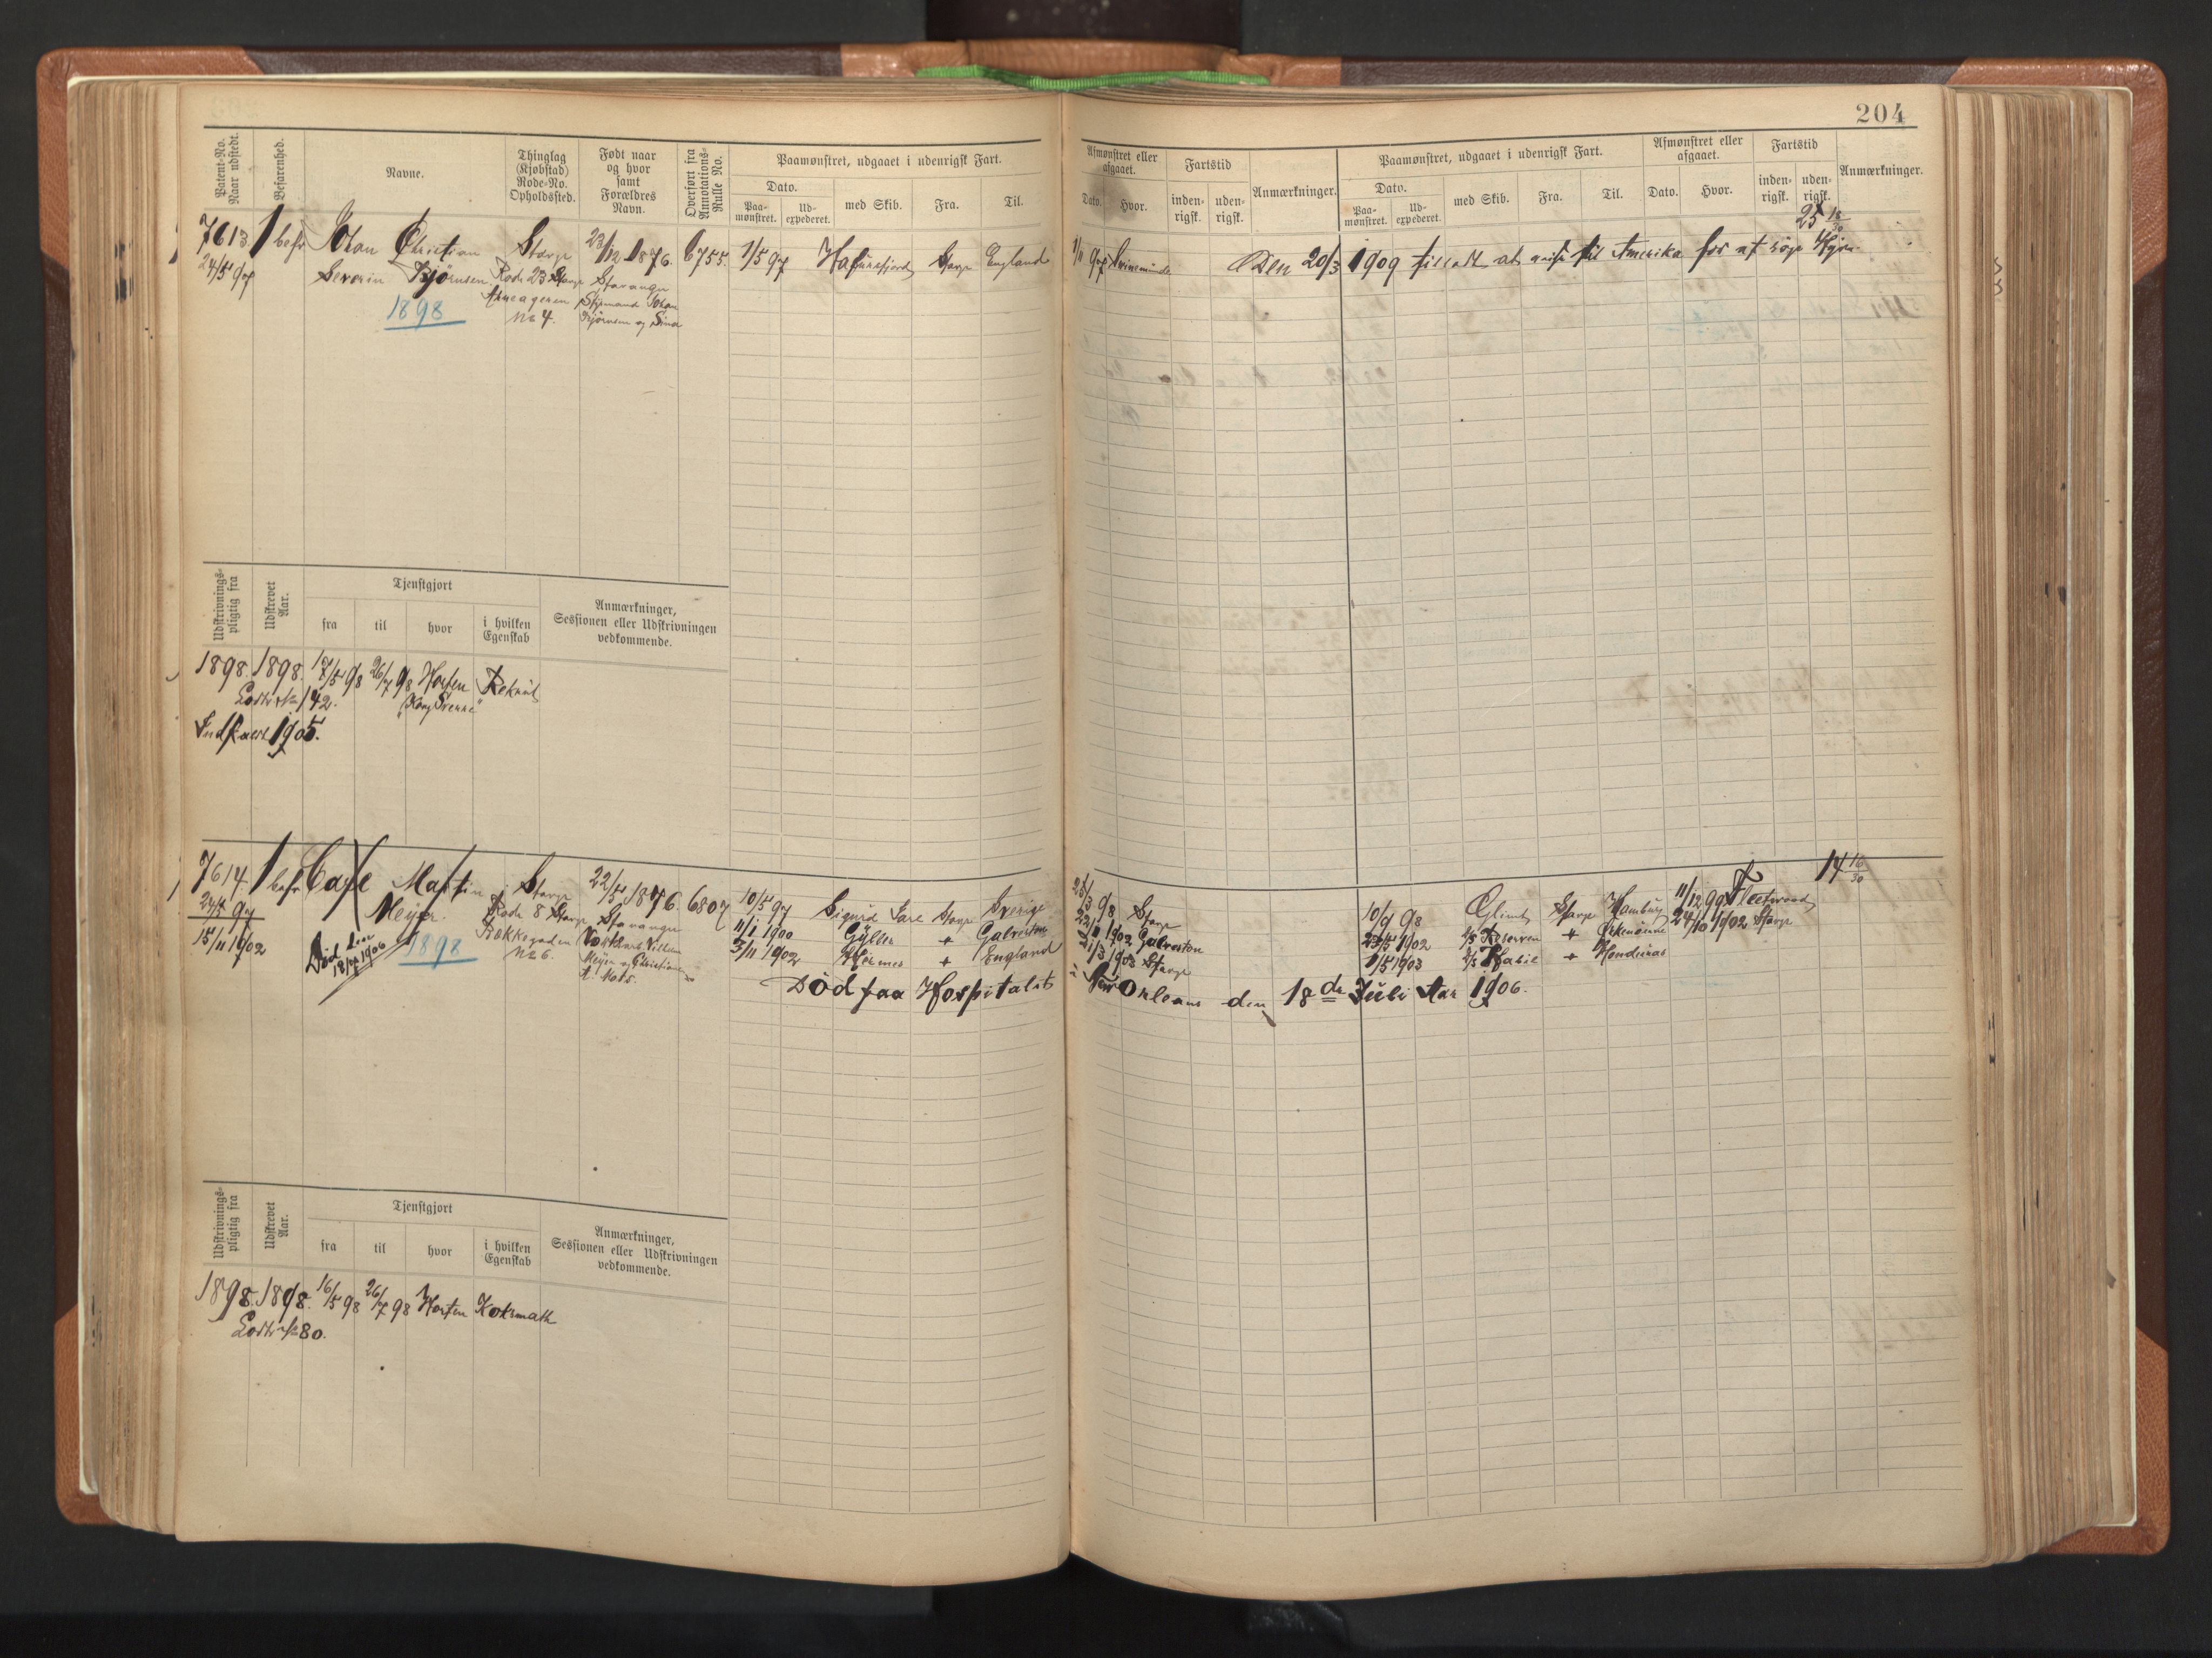 204
Patent-No. Naar udstedt.
Befarenhed.
Navne.
Thinglag (Kjøbstad) Rode-No. Opholdssted.
Født naar og hvor samt Forældres Navn.
Overført fra Annotations-Rulle No.
Paamønstret, udgaaet i udenrigsk Fart.
Dato.
Paa-mønstret.
Ud-expederet.
med Skib.
Fra.
Til.
Afmønstret eller afgaaet.
Dato.
Hvor.
Fartstid
inden-rigsk.
uden-rigsk.
Anmærkninger.
Paamønstret, udgaaet i udenrigsk Fart.
Dato.
Paa-mønstret.
Ud-expederet.
med Skib.
Fra.
Til.
Afmønstret eller afgaaet.
Dato.
Hvor.
Fartstid
inden-rigsk.
uden-rigsk.
Anmærkninger.
25 18/30
7613 1 befr Johan Christian Stavgr 23/12 1876. 6755. 1/5 97 Hafursfjord Stavgr England 1/11 97 Svinemünde Den 20/3 1909 tilladt at reise til Amerika for at søge Hyre.
24/5 97 Severin Bjørnsen Rode 23 Stavgr Stavanger
Styrmand Johan
1898 No 4. Bjørnsen og Sina
Udskrivnings-pligtig fra
Udskrevet Aar.
Tjenstgjort
fra
til
hvor
i hvilken Egenskab
Anmærkninger, Sessionen eller Udskrivningen vedkommende.
1898. 1898. 17/5 98 26/7 98 Horten Rekrut
Lodtr No 142. "Kong Sverre"
Indkaldt 1905.
14 16/30
7614 1 befr Carl Martin Stavgr 22/5 1876. 6807 10/5 97 Sigurd Jarl Stavgr Sverige 25/3 98 Stavgr 10/9 98 Glimt Stavgr Hamburg 11/12 99 Fleetwood
24/5 97 Meyer. Rode 8 Stavgr Stavanger 11/1 1900 Gyller + Galveston 22/1 1902 Galveston 23/5 1902 2/5 Reserven + 24/10 1902 Stavgr
15/11 1902 Død den 18/7 1906 1898 Bakkegaden No 6. 3/11 1902 Hermes + England 21/3 1903 Stavgr 1/5 1903 + Honduras
Meyer og Christiane
Død paa Hospitalet i New Orleans den 18de Juli Aar 1906.
Udskrivnings-pligtig fra
Udskrevet Aar.
Tjenstgjort
fra
til
hvor
i hvilken Egenskab
Anmærkninger, Sessionen eller Udskrivningen vedkommende.
1898. 1898. 16/5 98 26/7 98 Horten Koksmath
Lodtr No 80.